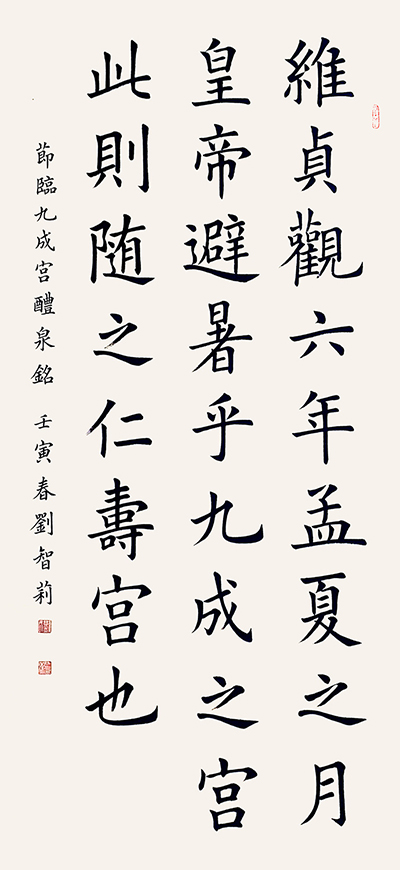 維貞觀六年孟夏之月
皇帝避暑乎九成之宫
此則随之仁壽宫也
節臨九成宫醴泉銘 壬寅春劉智莉